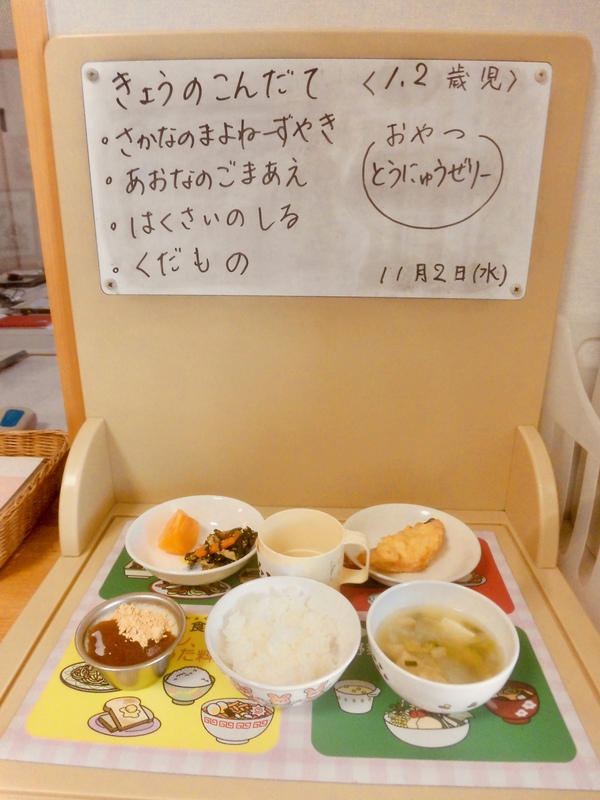 きょうのこんだて 〈1.2歳児〉
・さかなのまよねーずやき
・あおなのごまあえ
・はくさいのしる
・くだもの
おやつ
とうにゅうゼリー
11月2日(水)